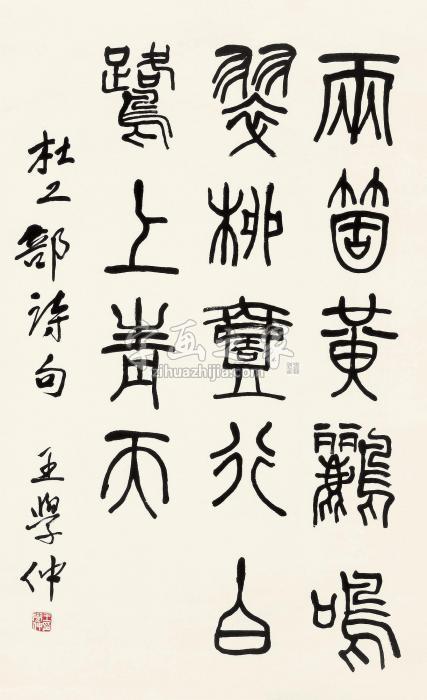 兩箇黃鸝鳴
翠柳壹行白
鷺上青天
杜工部诗句
王學仲
字画之家
zihuazhijia.com